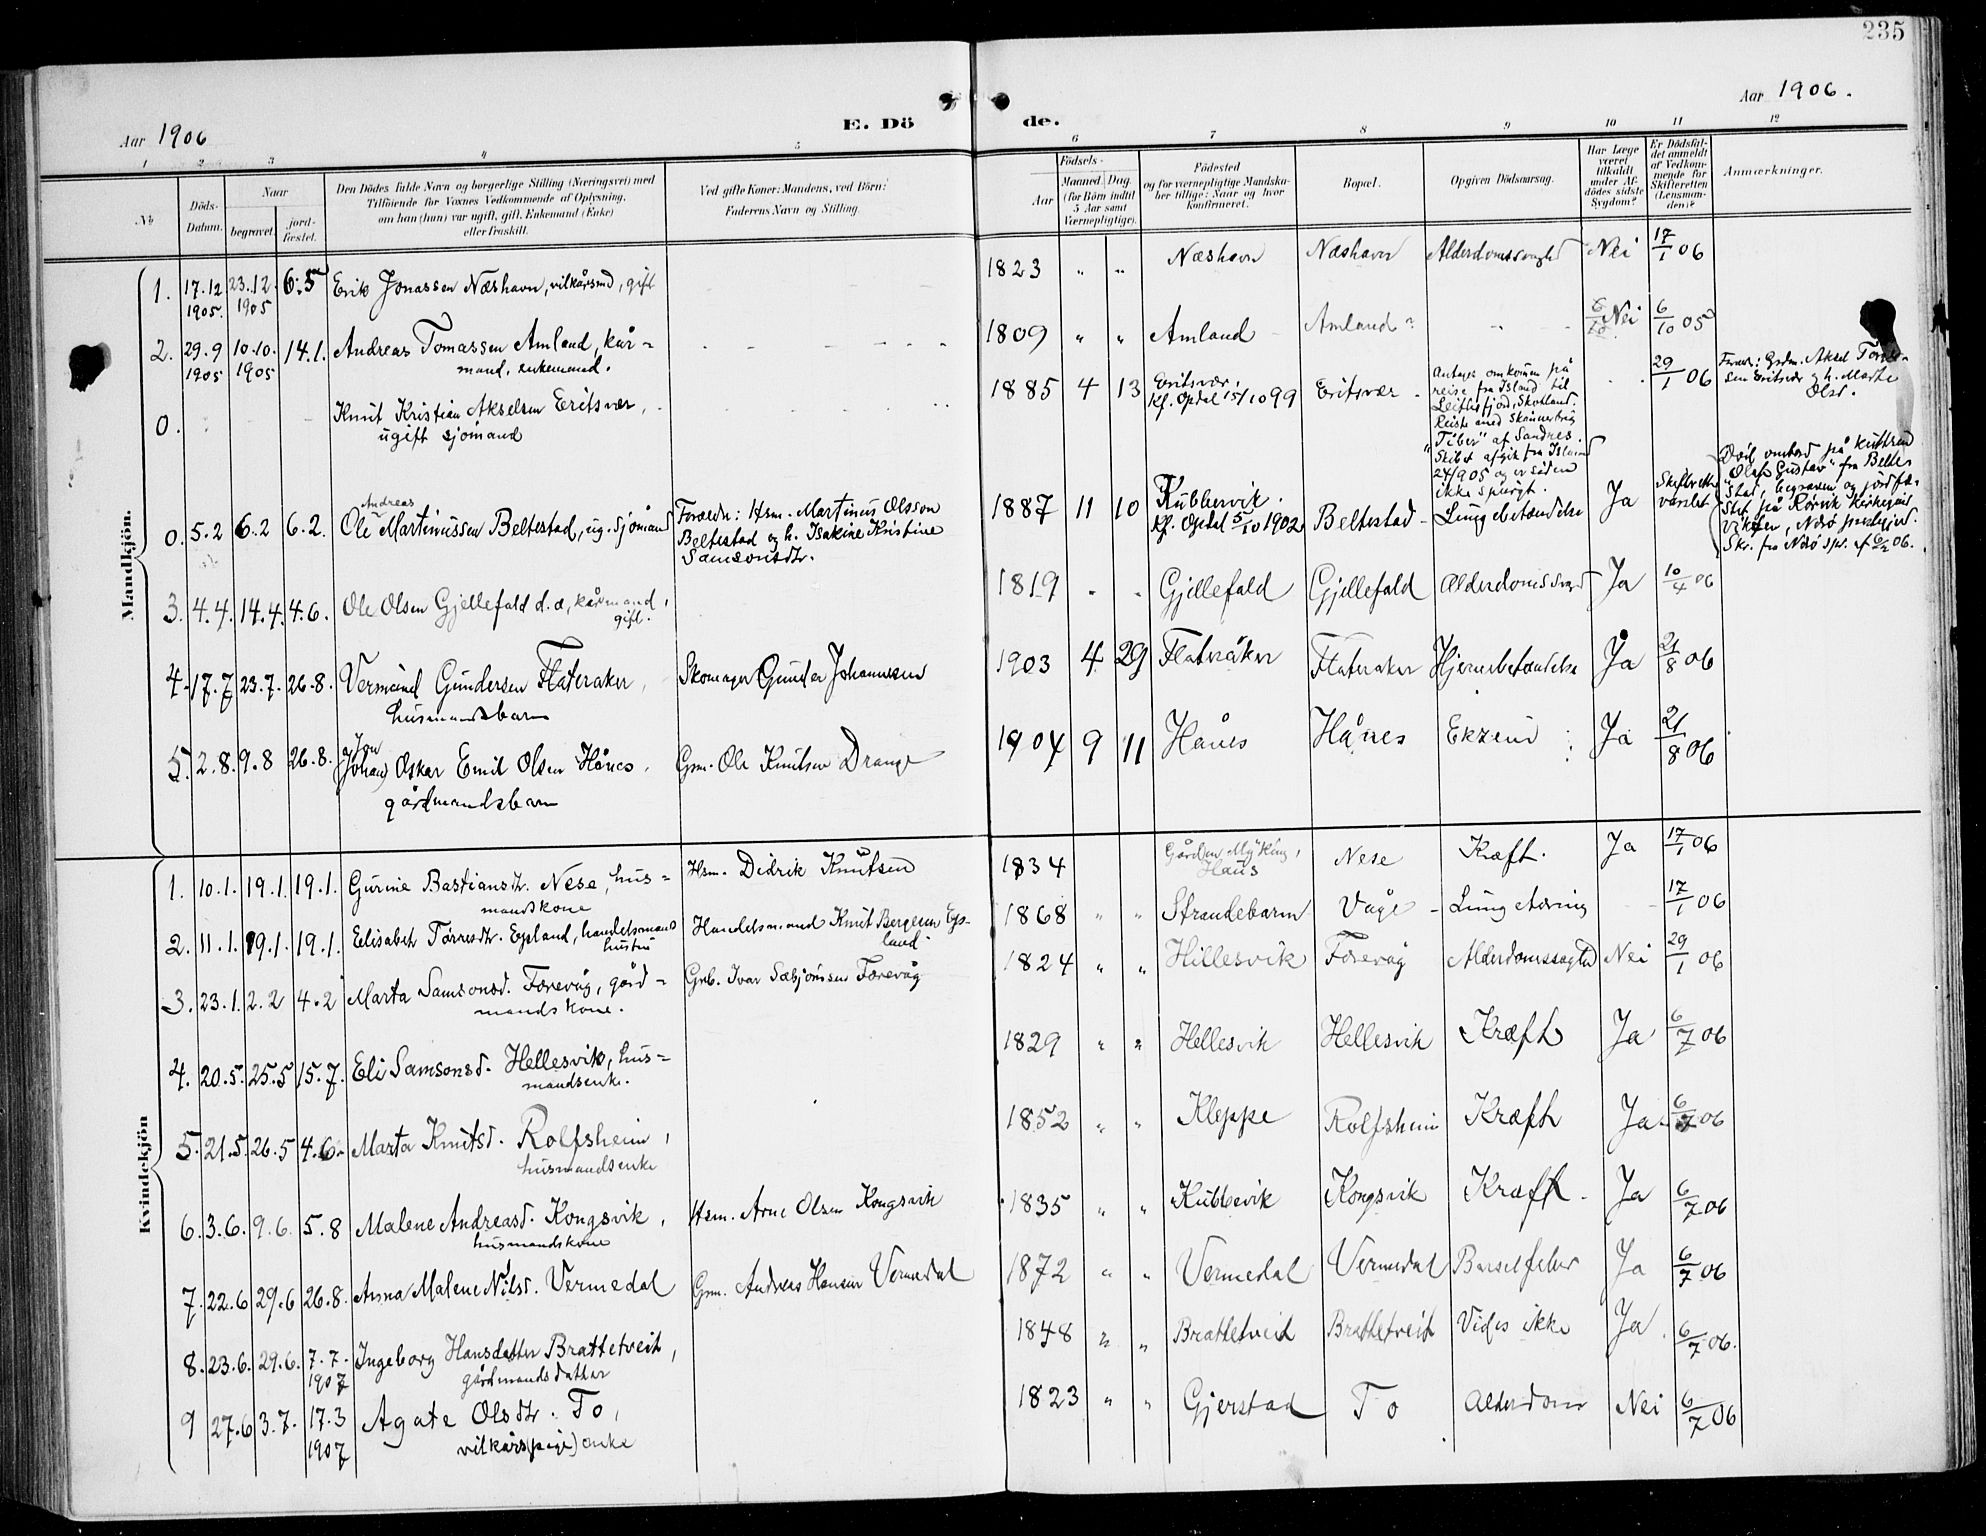 235
Aar 1906
E. Dö
de.
Aar 1906.
1 2 3 4 5 6 7 8 9 10 11 12
No
Döds-
Datum.
Naar
begravet.
jord-
fæstet.
Den Dödes fulde Navn og borgerlige Stilling (Næringsvei) med
Tilföiende for Voxnes Vedkommende af Oplysning,
om han (hun) var ugift, gift, Enkemand (Enke)
eller fraskilt.
Ved gifte Koner: Mandens, ved Börn:
Faderens Navn og Stilling.
Födsels-
Aar
Maaned. Dag.
(for Börn indtil
5 Aar samt
Værnepligtige).
Födested
og for værnepligtige Mandska-
ber tillige: Naar og hvor
konfirmeret.
Bopæl.
Opgiven Dödsaarsag.
Har Læge
været
tilkaldt
under Af-
dödes sidste
Sygdom?
Er Dödsfal-
det anmeldt
af Vedkom-
mende for
Skifteretten
(Lensman-
den)?
Anmærkninger.
Mandkjön.
1. 17.12 1905. 23.12. 1905 6.5 Erik Jonassen Næshavn, vilkårsmd, gift 1823 " " Næshavn Næshavn Alderdomssvaghd Nei 17/1 06
2. 29.9 1905 10.10. 1905 14.1. Andreas Tomassen Amland, kår-
mand, enkemand. 1809 " " Amland Amland 6/10 Nei 6/10 05
0. Knut Kristian Akselsen Eritsvær,
ugift sjømand 1885 4 13 Eritsvær,
Kf. Opdal 15/10 99 Eritsvær
Antages omkommen på
reise fra Island til
Leithsfjord, Skotland.
Reiste med Skonnertbrig
"Tiber" af Sandnes.
Skibet afgik fra Island
24/1905 og er siden
ikke spurgt.
29/1 06
Foræl: Grdm. Aksel
sen Eritsvær og h. Marta
Olsd.
0. 5.2 6.2 6.2. Andreas
Ole Martinussen Beltestad, ug. sjømand
Forældr: Hsm. Martinus Olsson
Beltestad og h. Isakine Kristine
Samsonsdtr.
1887 11 10 Kubbervik.
Kf. Opdal 5/10 1902 Beltestad Lungebetændelse Ja Skifteretten
varslet
Død ombord på kuttren
"Olaf Gustav" fra Belte-
stad, begraven og jordfæ-
stet på Rörvik Kirkegård
Vikten, Nærø prestegjed.
Skr. fra Nærø spr. af 6/2 06.
3. 4.4. 14.4. 4.6. Ole Olsen Gjellefald d.æ, kårmand,
gift. 1819 " " Gjellefald Gjellefald Alderdomssvagd Ja 10/4 06
4. 17.7 23.7. 26.8. Vermund Gundersen Flateraker,
husmandsbarn Skomager Gunder Johannesen 1903 4 29 Flateråker Flateraker Hjernebetændelse Ja 21/8 06
5. 2.8. 9.8 26.8. Jon
(Johan) Oskar Emil Olsen Hånes,
gårdmandsbarn Gsm. Ole Knutsen Drange 1904 9 11 Hånes Hånes Ekzem Ja 21/8 06
Kvindekjön
1. 10.1. 19.1. 19.1. Gurine Bastiansdtr. Nese, hus-
mandskone Hsm. Didrik Knutsen 1834 Gården Myking,
Haus Nese Kræft. Ja 17/1 06
2. 11.1. 19.1. 19.1. Elisabet Torresdtr. Epland, handelsmands
hustru Handelsmand Knut Bergesen Ep-
land 1868 " " Strandebarm Våge Lungetæring 17/1 06
3. 23.1. 2.2 4.2 Marta Samsonsd. Forevåg, gård-
mandskone. Grb. Ivar Sæbjörnsen Forevåg 1824 " " Hillesvik Forevåg Alderdomssvaghd Nei 29/1 06
4. 20.5. 25.5 15.7. Eli Samsonsd. Hellesvik, hus-
mandsenke. 1829 " " Hellesvik Hellesvik Kræft Ja 6/7 06
5. 21.5. 26.5 4.6. Marta Knutsd. Rolfsheim,
husmandsenke 1852 " " Kleppe Rolfsheim Kræft Ja 6/7 06
6. 3.6. 9.6. 5.8 Malene Andreasd. Kongsvik,
husmandskone Hsm. Arne Olsen Kongsvik 1835 " " Kubbevik Kongsvik Kræft. Ja 6/7 06
7. 22.6. 29.6 26.8. Anna Malene Nilsd. Vermedal Gsm. Andreas Hansen Vermedal 1872 " " Vermedal Vermedal Barselfeber Ja 6/7 06
8. 23.6. 29.6. 7.7. 1907 Ingeborg Hansdatter Brattetveit,
gårdmandsdatter 1848 " " Brattetveit Brattetveit Vides ikke Ja 6/7 06.
9 27.6 3.7. 17.3 1907 Agate Olsdtr. To,
vilkårs(pige) enke 1823 " " Gjerstad To Alderdom Nei 6/7 06